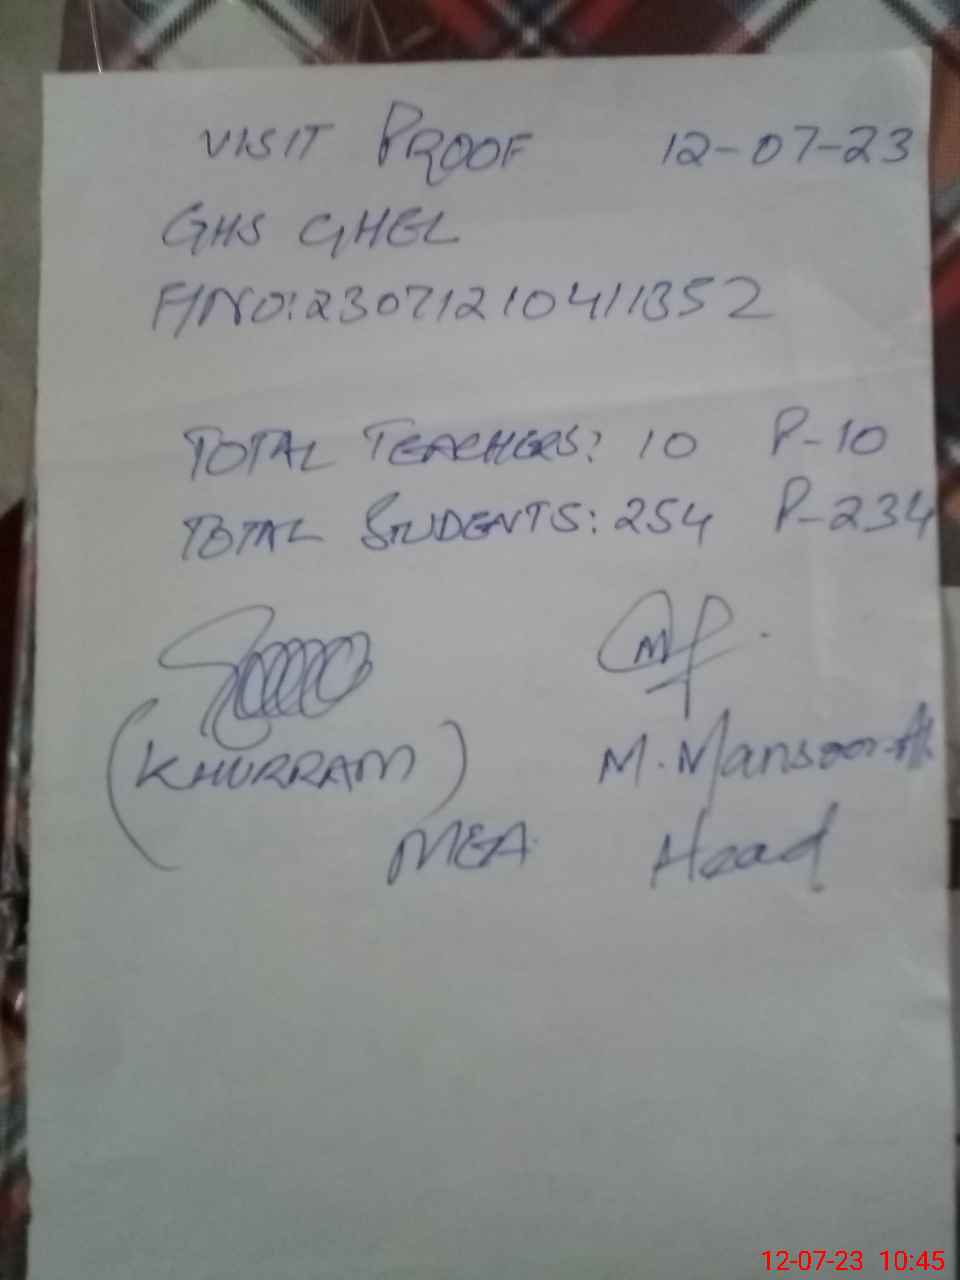 VISIT PROOF 12-07-23
GHS GHEL
F/NO:23071210411352
TOTAL TEACHERS: 10 P-10
TOTAL STUDENTS: 254 P-234
(KHURRAM) M. Mansoor
MEA Head
12-07-23 10:45